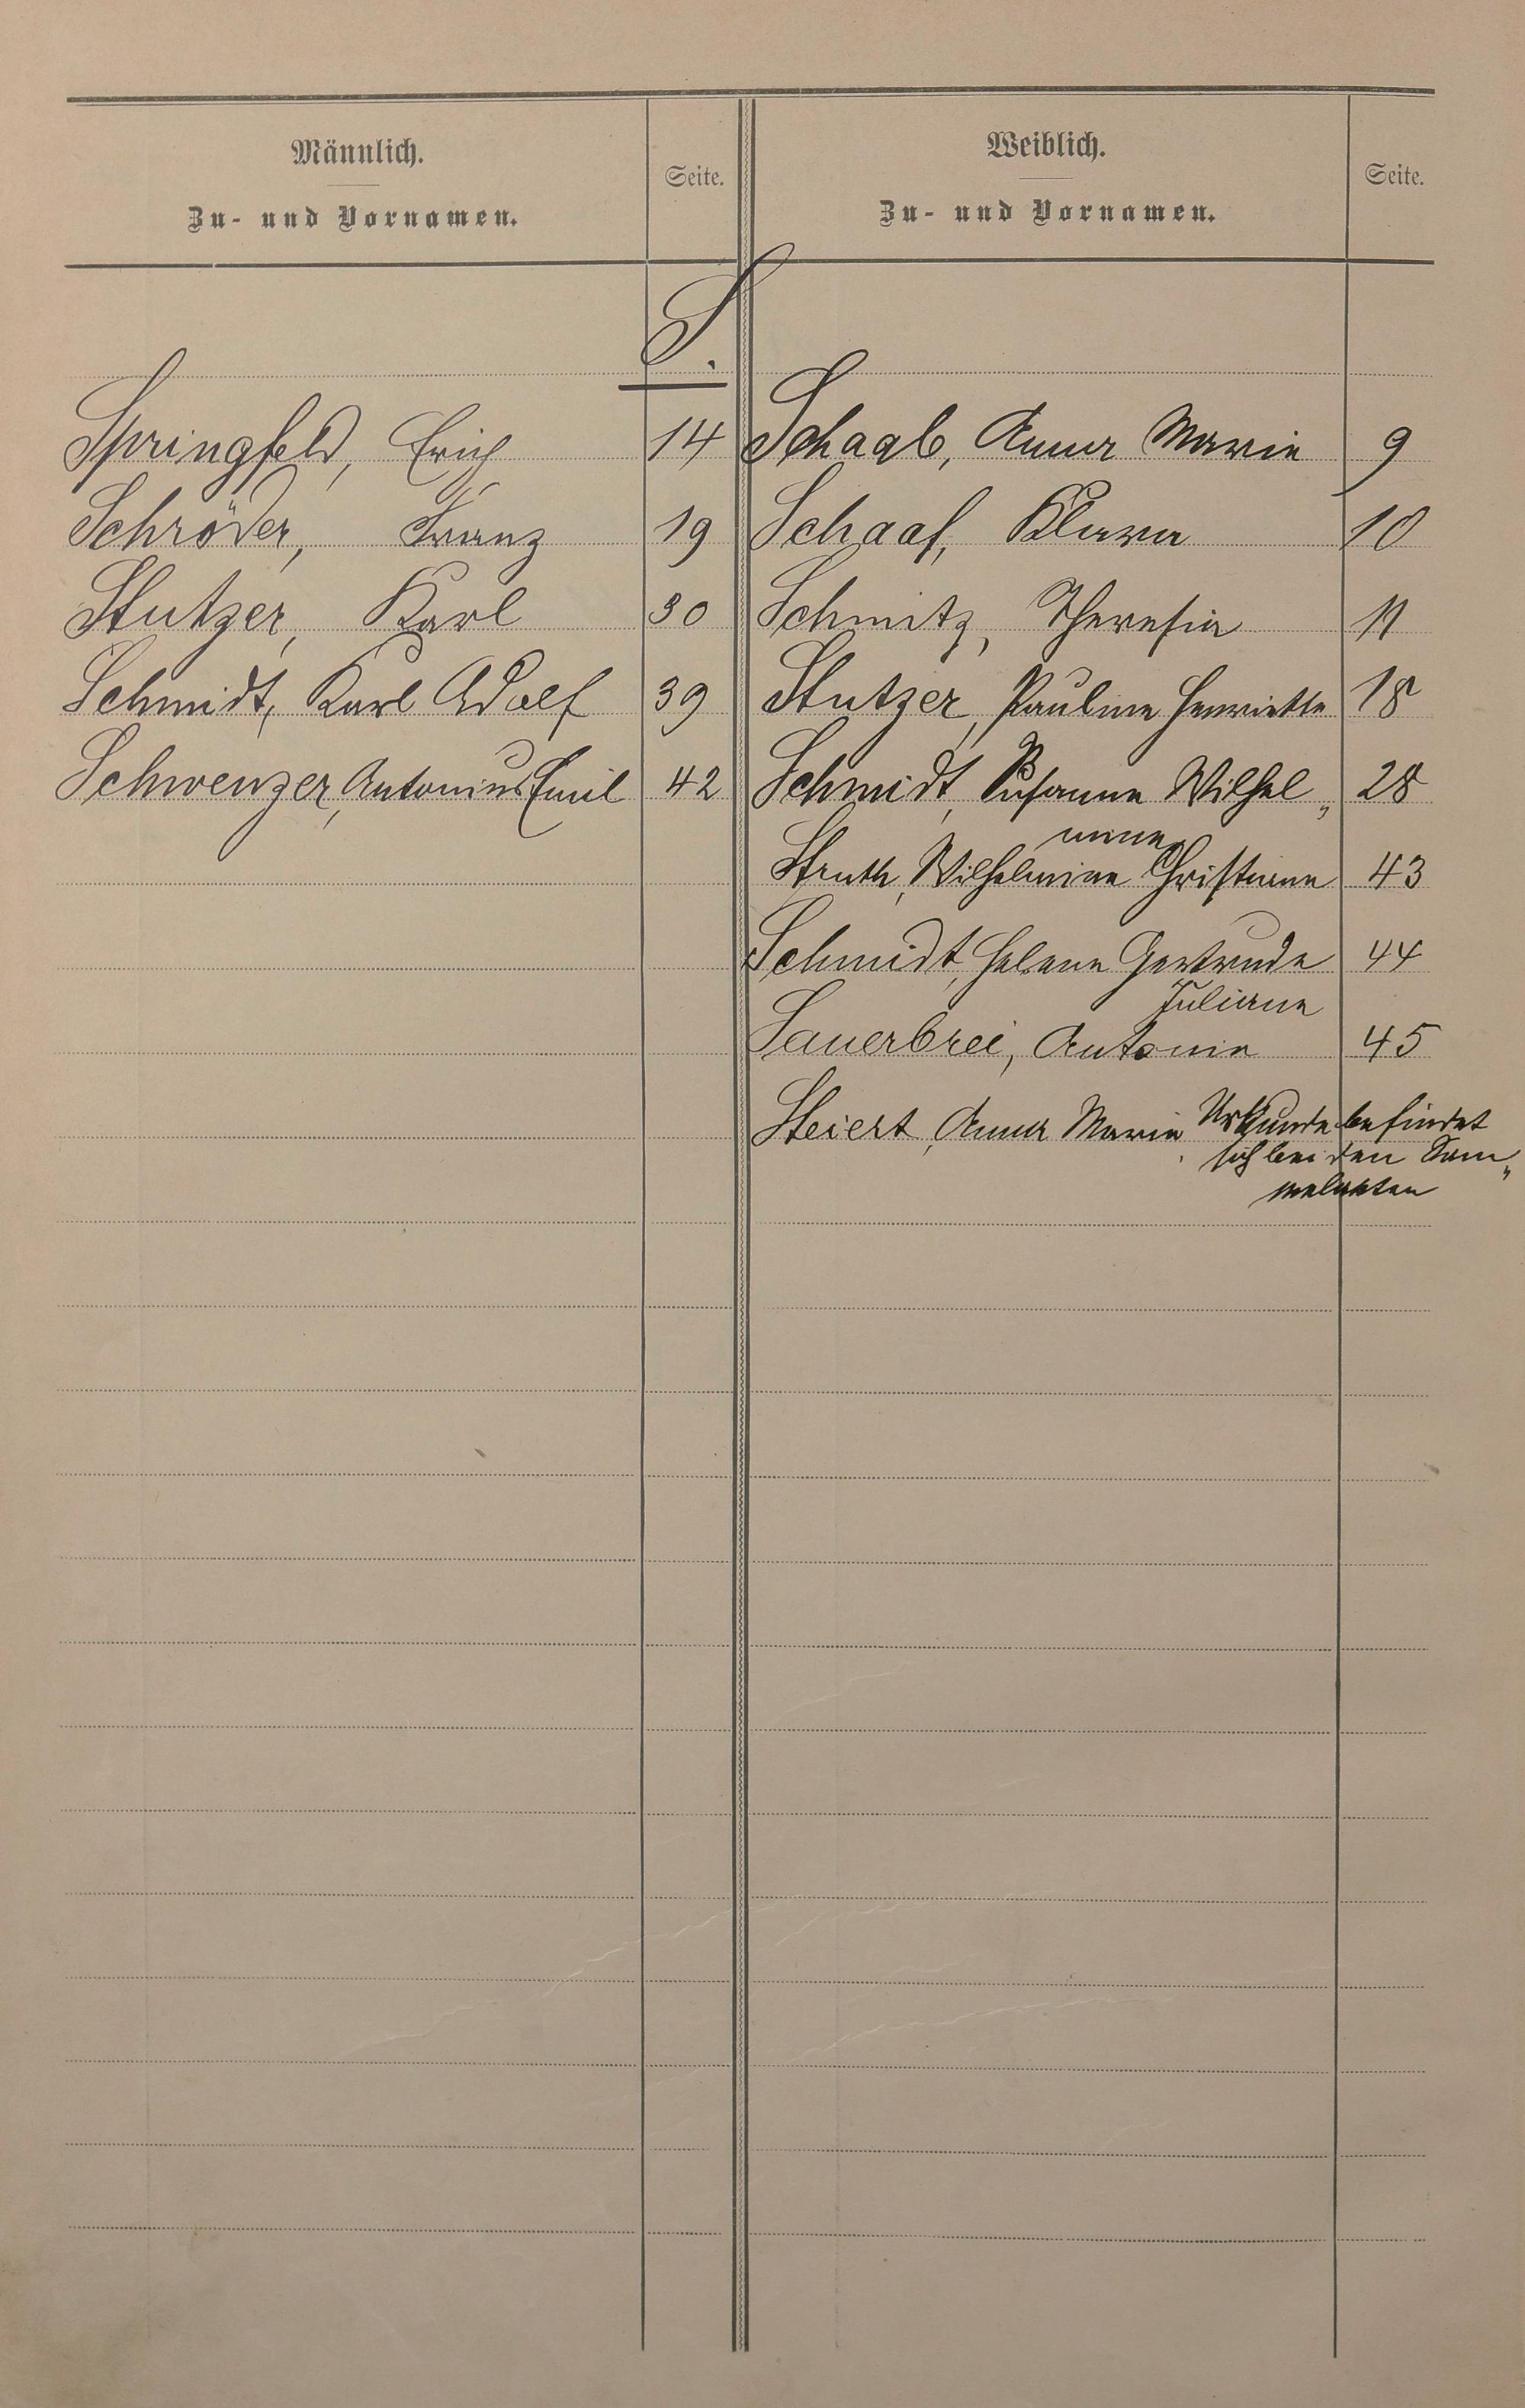 Männlich.
Zu- und Vornamen.
Seite.
Weiblich.
Zu- und Vornamen.
Seite.
S.
Springfeld, Erich 14
Schröder, Franz 19
Stutzer, Karl 30
Schmidt, Karl Adolf 39
Schwenzer, Antonius Emil 42
Schaab, Anna Marie 9
Schaaf, Klara 10
Schmitz, Theresia 11
Stutzer, Pauline Henriette 18
Schmidt, Susanna Wilhel„ 28
mine
Struth, Wilhelmine Christiane 43
Schmidt, Helene Gertrude 44
Juliane
Sauerbrei, Antonie 45
Steiert, Anna Marie Urkunde befindet
sich bei den Sam„
melakten